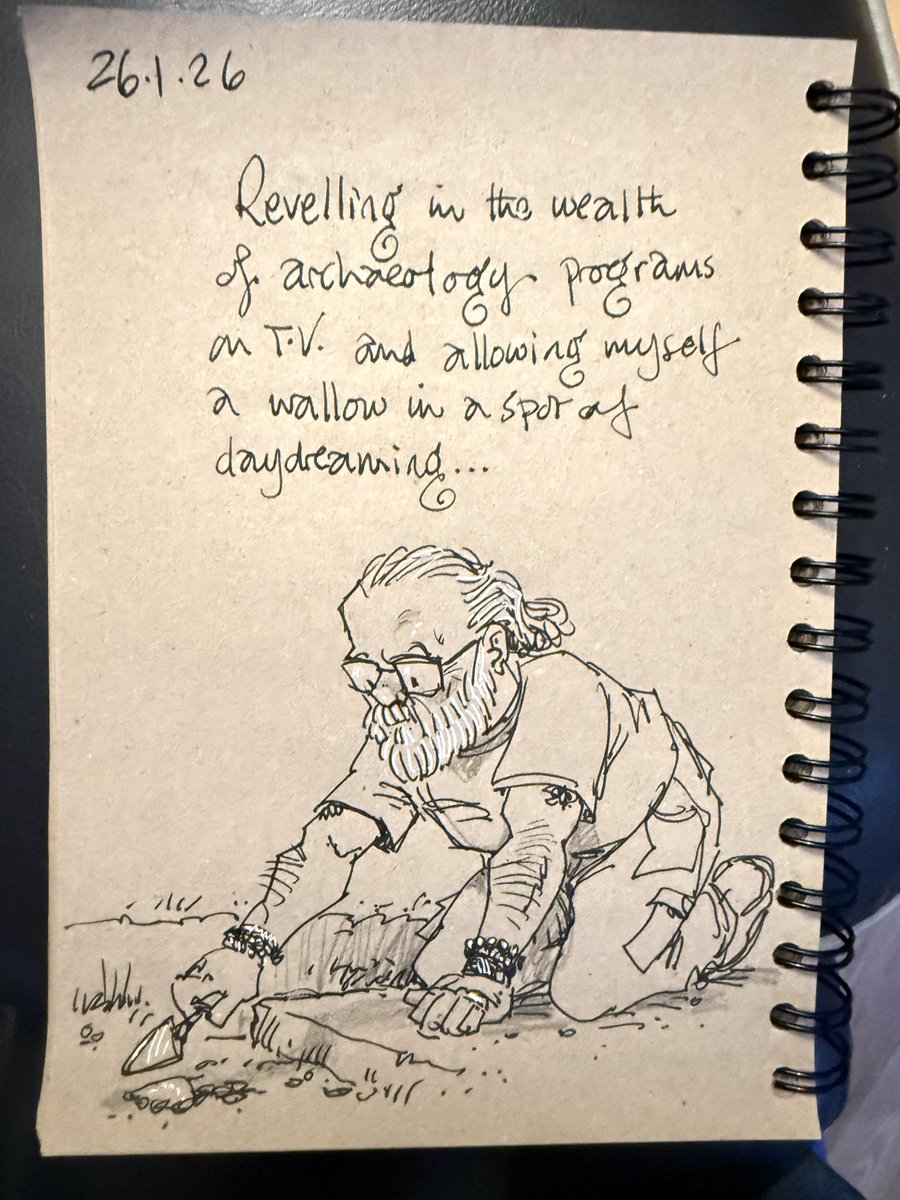 26.1.26
Revelling in the wealth
of archaeology programs
on T.V. and allowing myself
a wallow in a spot of
daydreaming...